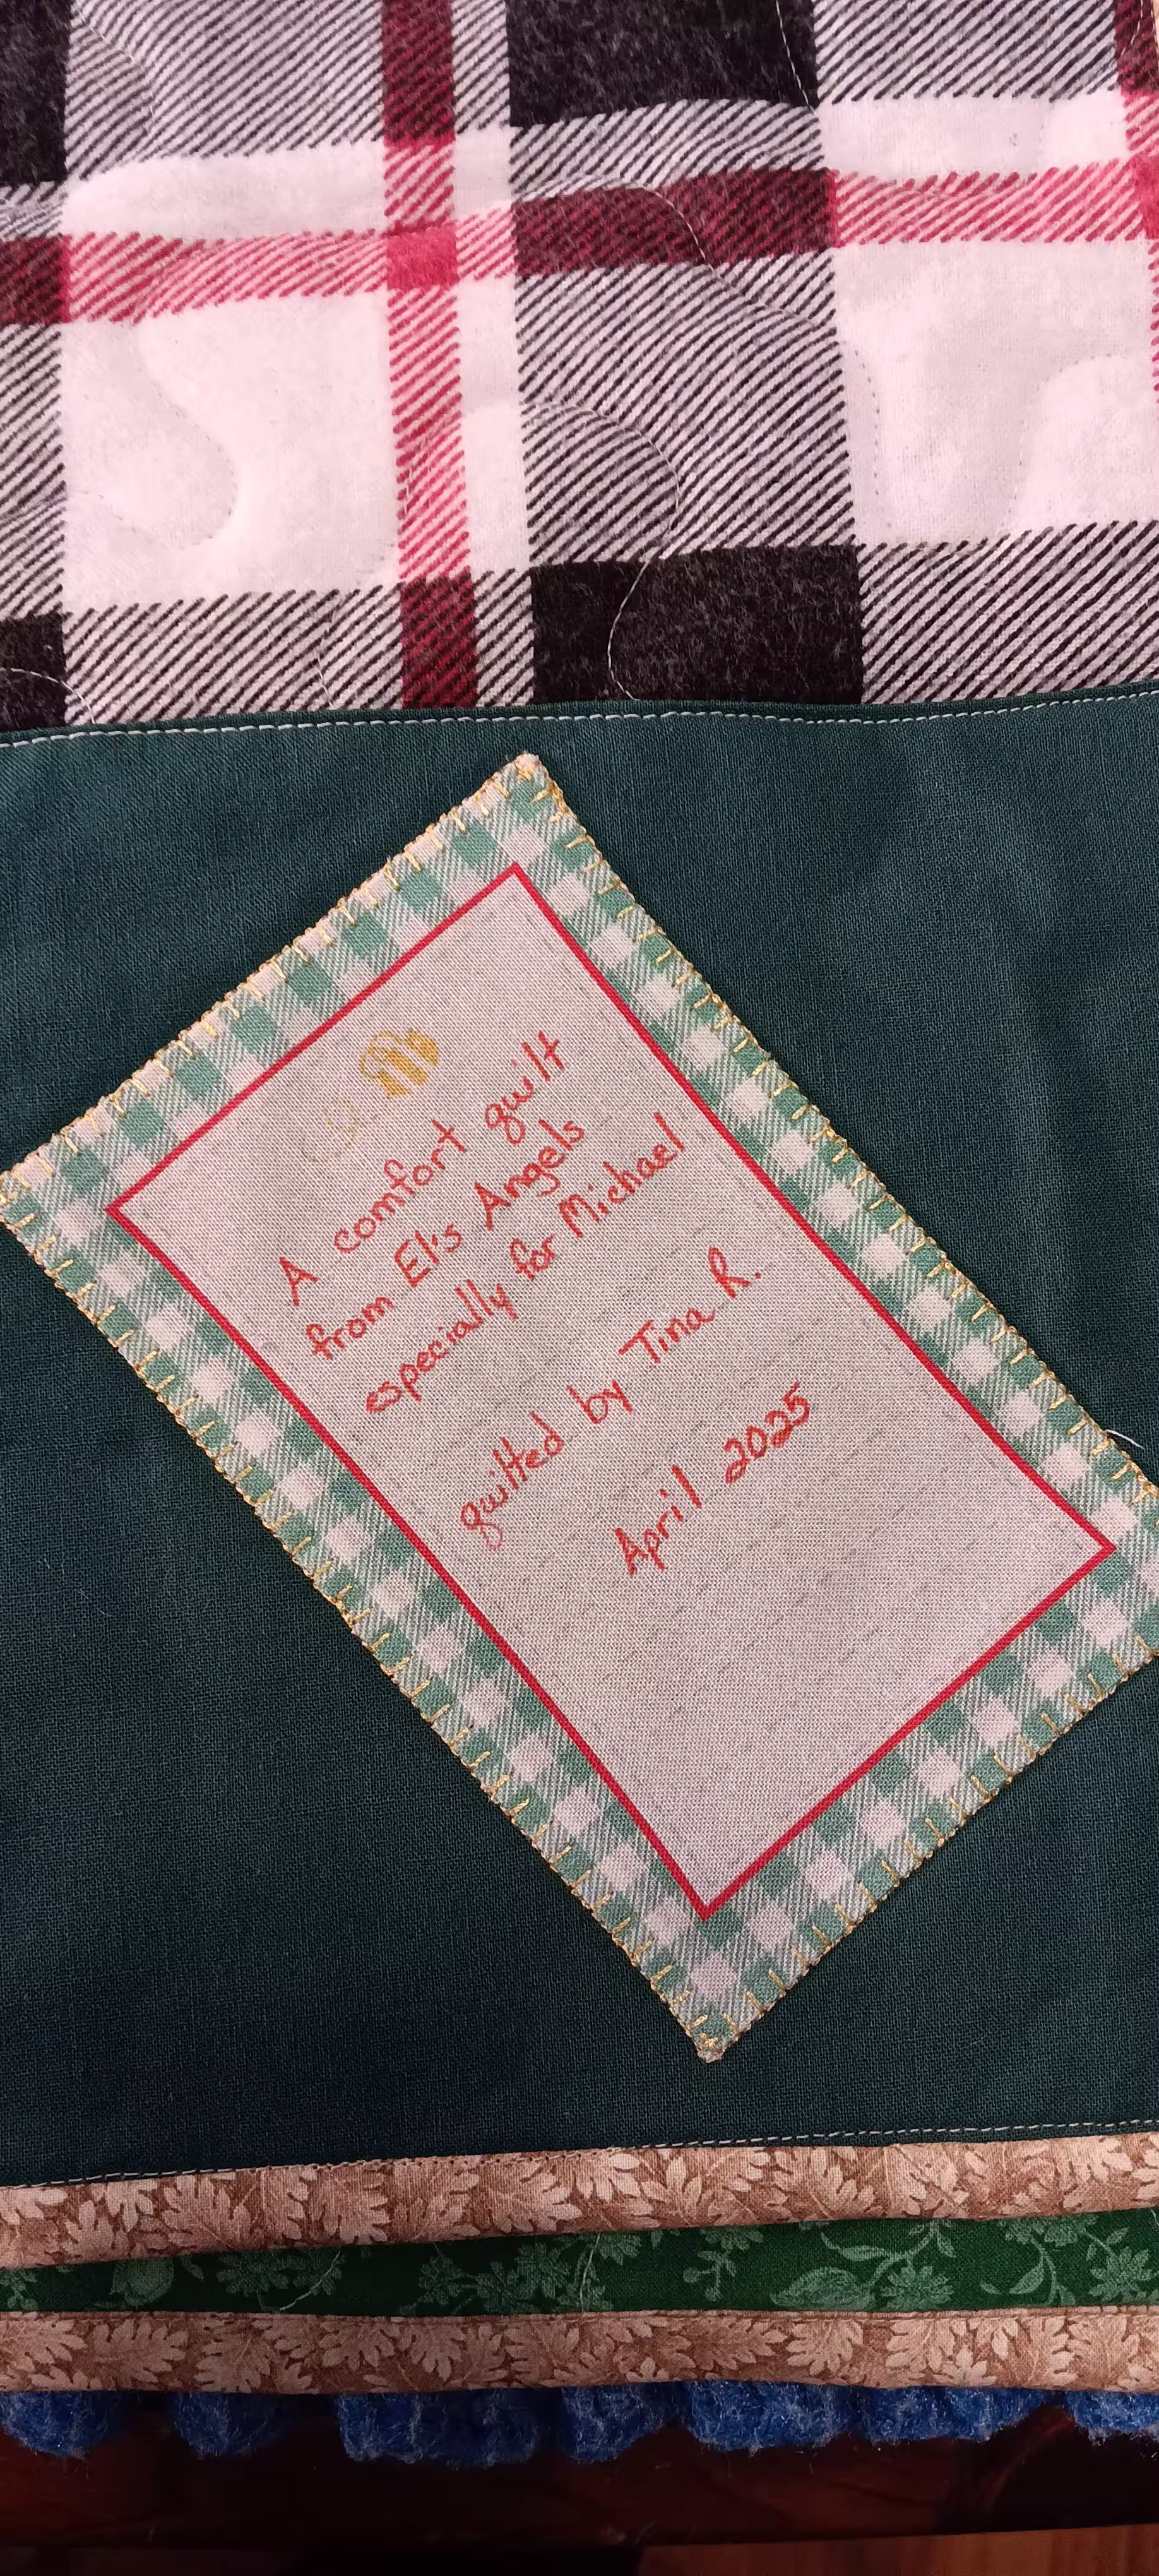 A comfort quilt
from El's Angels
especially for Michael
quilted by Tina R.
April 2025